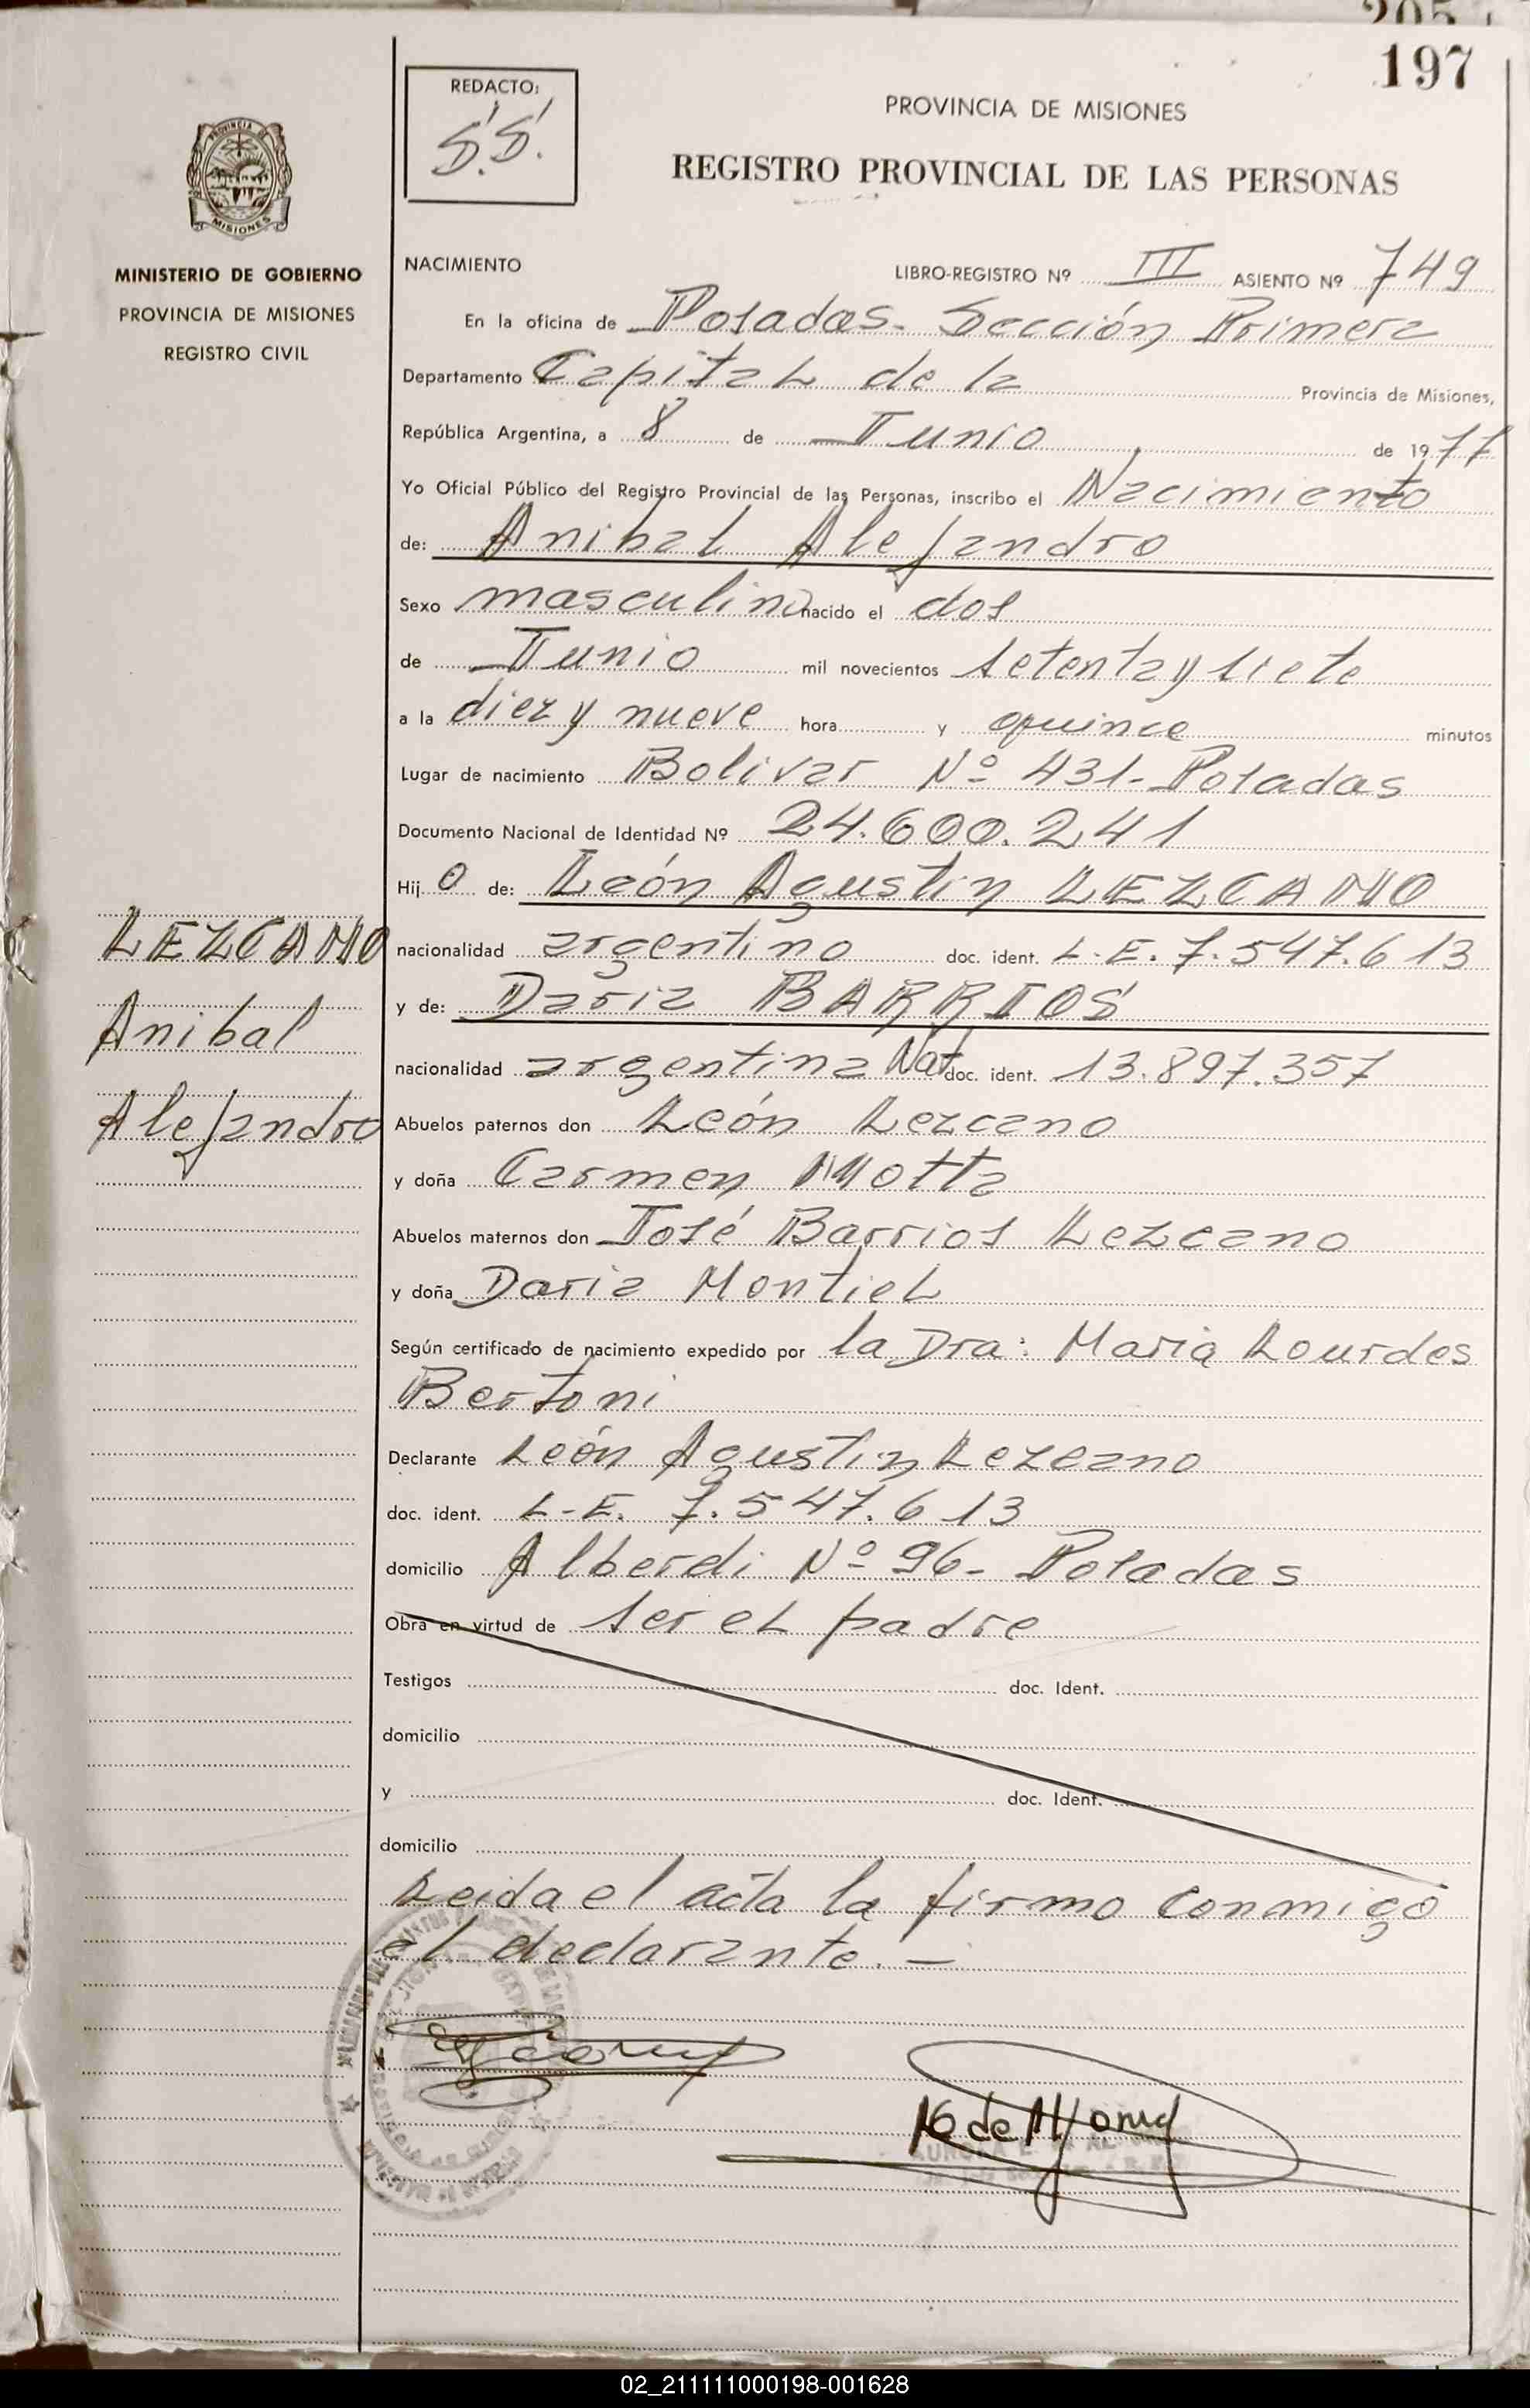 205
197
REDACTO:
S.S.
PROVINCIA DE MISIONES
REGISTRO PROVINCIAL DE LAS PERSONAS
PROVINCIA DE
MISIONES
MINISTERIO DE GOBIERNO
PROVINCIA DE MISIONES
REGISTRO CIVIL
NACIMIENTO
LIBRO-REGISTRO Nº III ASIENTO Nº 749
En la oficina de Posadas- Sección Primera
Departamento Capital de la Provincia de Misiones,
República Argentina, a 8 de Junio de 1977
Yo Oficial Público del Registro Provincial de las Personas, inscribo el Nacimiento
de: Anibal Alejandro
Sexo masculino nacido el dos
de Junio mil novecientos setenta y siete
a la diez y nueve hora y quince minutos
Lugar de nacimiento Bolivar Nº 431- Posadas
Documento Nacional de Identidad Nº 24.600.241
Hij o de: León Agustin LEZCANO
nacionalidad argentino doc. ident. L.E. 7.547.613
y de: Daria BARRIOS
nacionalidad argentina Nat doc. ident. 13.897.357
Abuelos paternos don León Lezcano
y doña Carmen Motta
Abuelos maternos don José Barrios Lezcano
y doña Daria Montiel
Según certificado de nacimiento expedido por la Dra: Maria Lourdes
Bertoni
Declarante León Agustin Lezcano
doc. ident. L-E. 7.547.613
domicilio Alberdi Nº 96- Posadas
Obra en virtud de ser el padre
Testigos doc. Ident.
domicilio
y doc. Ident.
domicilio
Leida el acta la firmo conmigo
el declarante. —
LEZCANO
Anibal
Alejandro
02_211111000198-001628